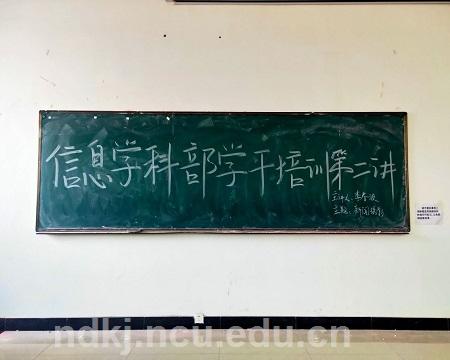 信息学科部学干培训第二讲
主讲人：李春波
主题：新闻摄影
ndkj.ncu.edu.cn